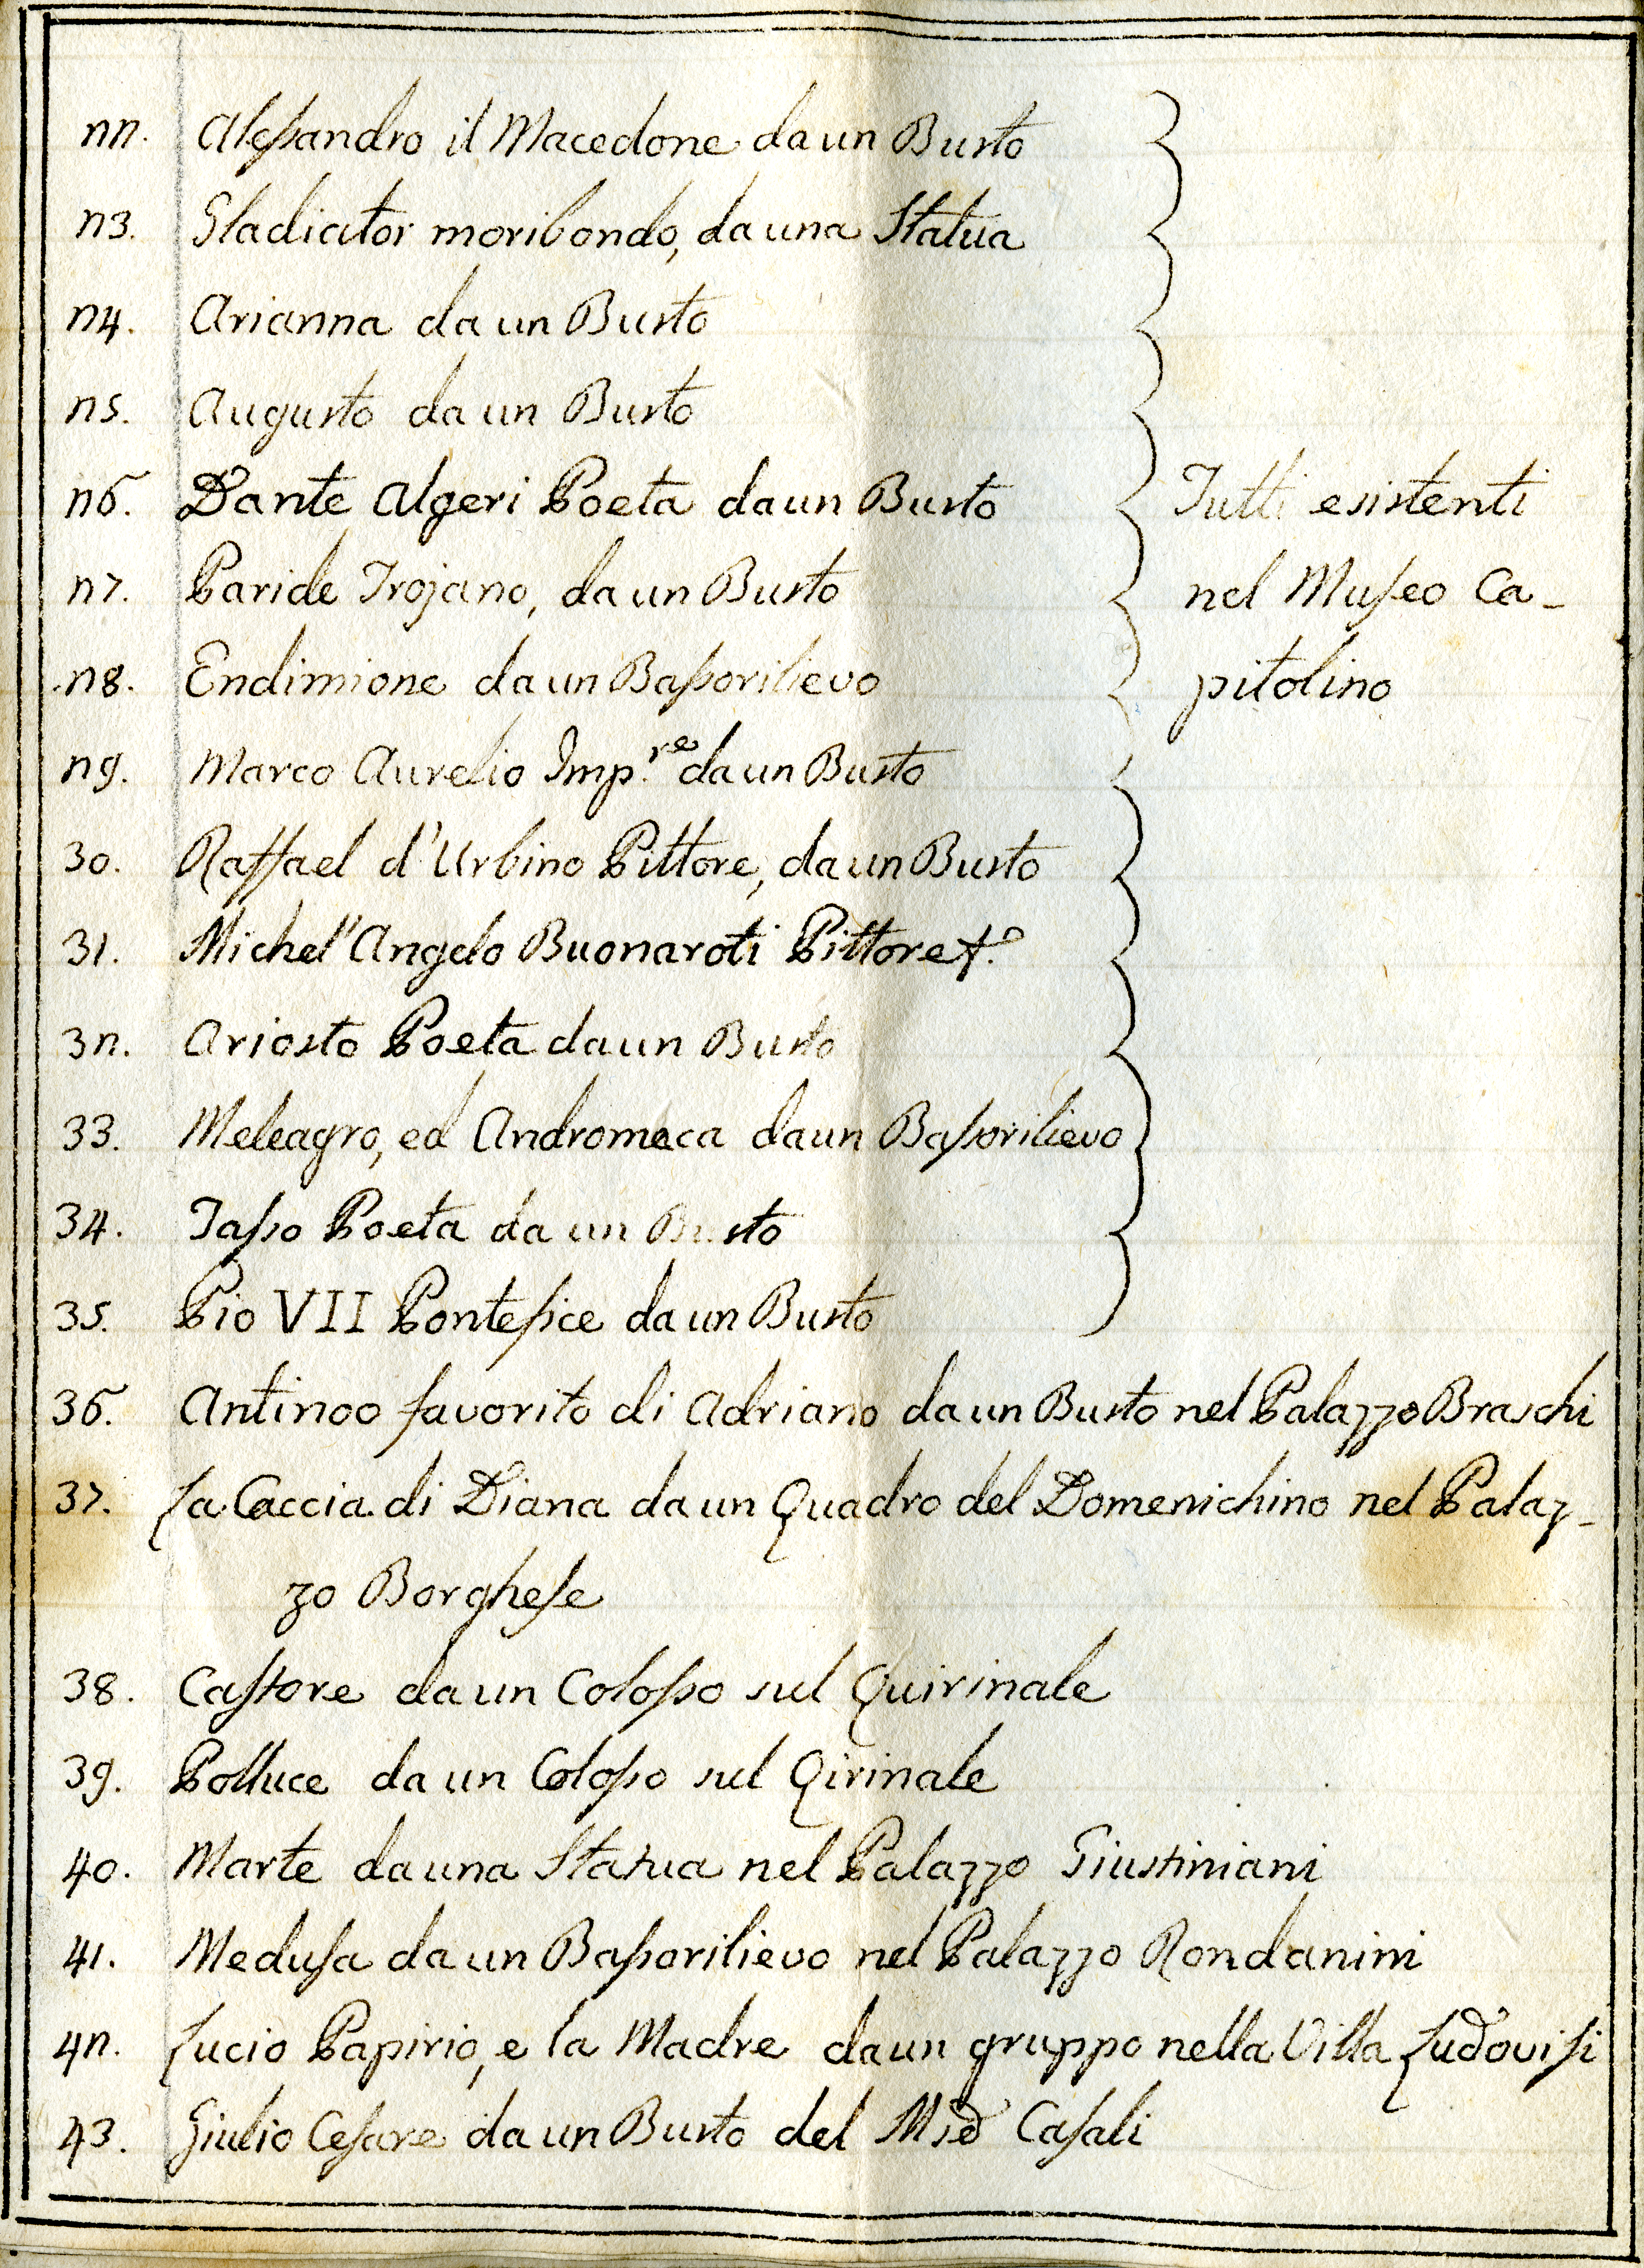 22. Alessandro il Macedone da un Busto
23. Gladiator moribondo, da una Statua
24. Arianna da un Busto
25. Augusto da un Busto
26. Dante Algeri Poeta da un Busto
27. Paride Trojano, da un Busto
28. Endimione da un Bassorilievo
29. Marco Aurelio Imp.re da un Busto
30. Raffael d'Urbino Pittore, da un Busto
31. Michel'Angelo Buonaroti Pittore
32. Ariosto Poeta da un Busto
33. Meleagro, ed Andromaca da un Bassorilievo
34. Tasso Poeta da un Busto
35. Pio VII Pontefice da un Busto
Tutti esistenti
nel Museo Ca-
pitolino
36. Antinoo favorito di Adriano da un Busto nel Palazzo Braschi
37. La Caccia di Diana da un Quadro del Domenichino nel Palaz-
zo Borghese
38. Castore da un Colosso sul Quirinale
39. Polluce da un Colosso sul Qirinale
40. Marte da una Statua nel Palazzo Giustiniani
41. Medusa da un Bassorilievo nel Palazzo Rondanini
42. Lucio Papirio, e la Madre da un gruppo nella Villa Ludovisi
43. Giulio Cesare da un Busto del Casali